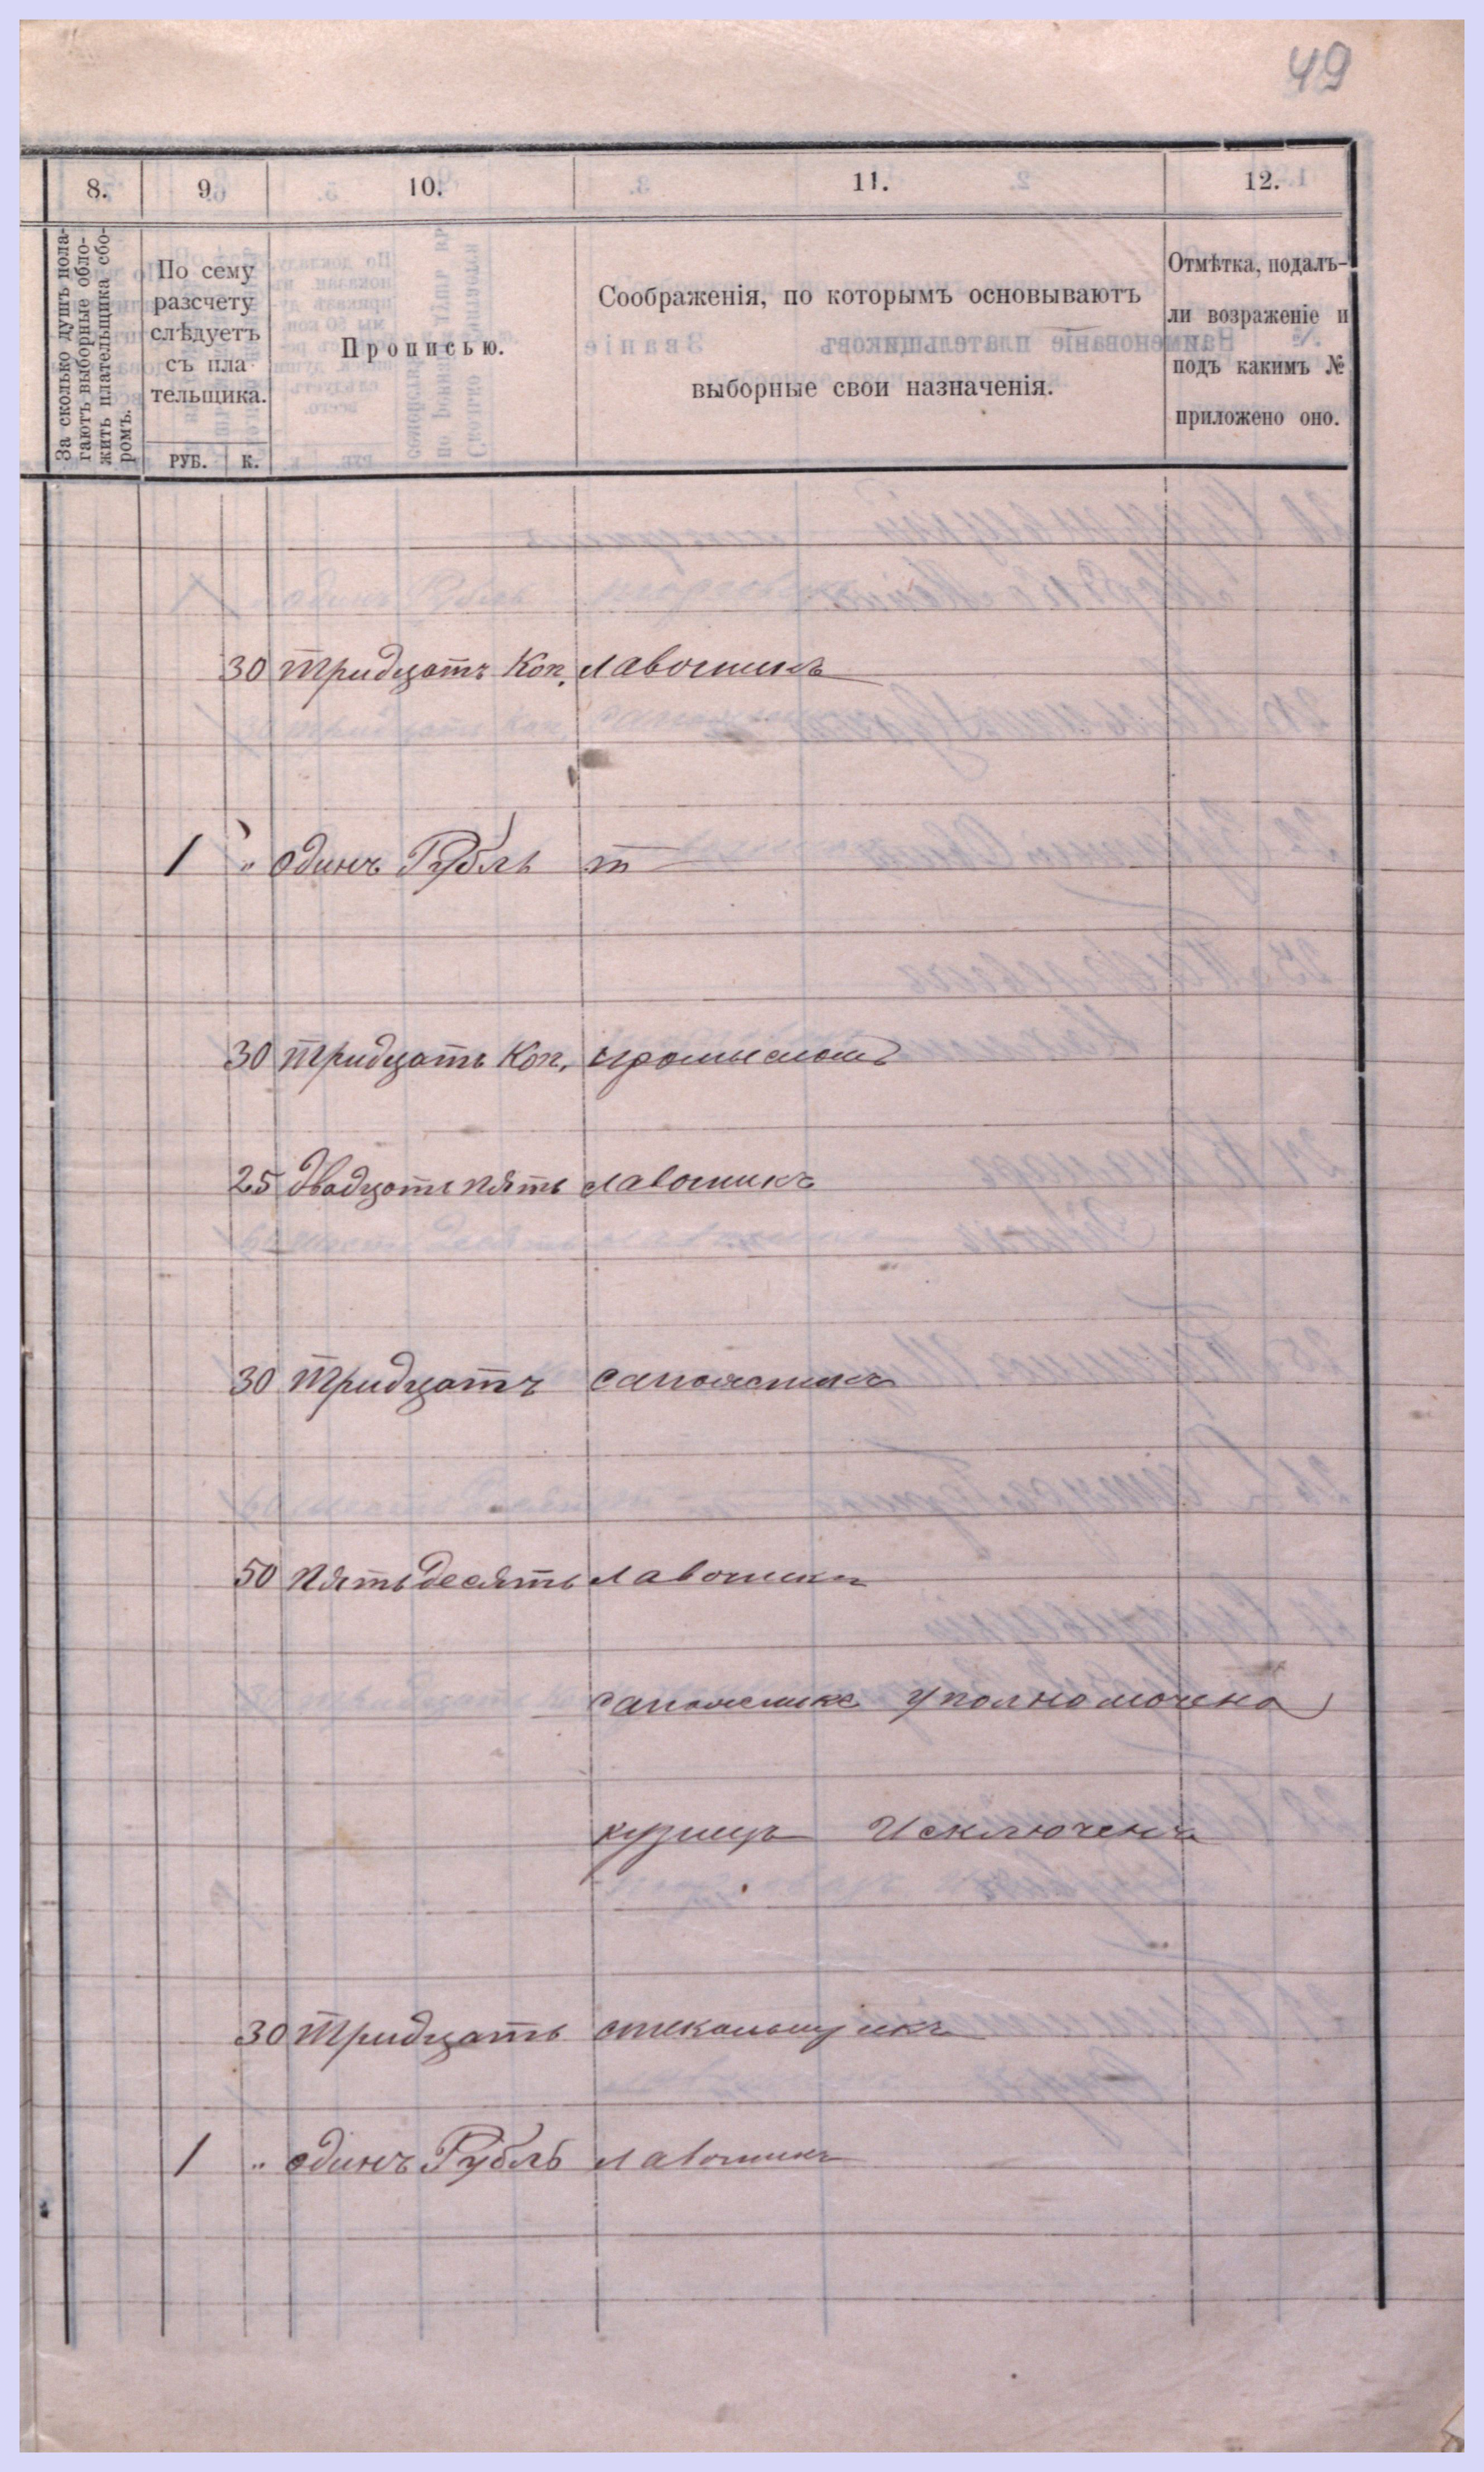 49
8. 9. 10. 11. 12.
За сколько душъ пола-
гаютъ выборные обло-
жить плательщика сбо-
ромъ.
По сему
разсчету
слѣдуетъ
съ пла-
тельщика.
РУБ. К.
Прописью.
Соображенія, по которымъ основываютъ
выборные свои назначенія.
Отмѣтка, подалъ-
ли возраженіе и
подъ какимъ №
приложено оно.
30 тридцать Коп. лавочникъ
1 " одинъ Рубль т
30 тридцать Коп. промысломъ
25 двадцать пять лавочникъ
30 тридцать сапожникъ
50 пятьдесять лавочникъ
сапожникъ уполномочена
кузнецъ Исключенъ
30 тридцать стекольщикъ
1 " одинъ Рубль лавочникъ